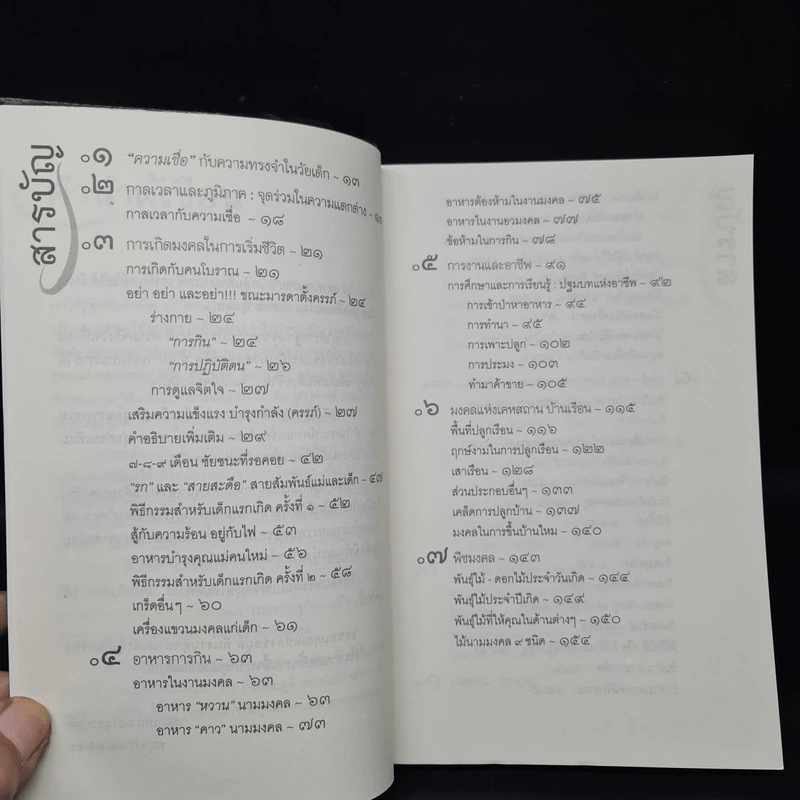 สารบัญ
๐๑ "ความเชื่อ" กับความทรงจำในวัยเด็ก ~ ๑๓
๐๒ กาลเวลาและภูมิภาค : จุดร่วมในความแตกต่าง ~
กาลเวลากับความเชื่อ ~ ๑๘
๐๓ การเกิดมงคลในการเริ่มชีวิต ~ ๒๑
การเกิดกับคนโบราณ ~ ๒๑
อย่า อย่า และอย่า!!! ขณะมารดาตั้งครรภ์ ~ ๒๔
ร่างกาย ~ ๒๔
"การกิน" ~ ๒๔
"การปฏิบัติตน" ~ ๒๖
การดูแลจิตใจ ~ ๒๗
เสริมความแข็งแรง บำรุงกำลัง (ครรภ์) ~ ๒๗
คำอธิบายเพิ่มเติม ~ ๒๙
๗-๘-๙ เดือน ชัยชนะที่รอคอย ~ ๔๒
"รก" และ "สายสะดือ" สายสัมพันธ์แม่และเด็ก ~ ๔๗
พิธีกรรมสำหรับเด็กแรกเกิด ครั้งที่ ๑ ~ ๕๒
สู้กับความร้อน อยู่กับไฟ ~ ๕๓
อาหารบำรุงคุณแม่คนใหม่ ~ ๕๖
พิธีกรรมสำหรับเด็กแรกเกิด ครั้งที่ ๒ ~ ๕๘
เกร็ดอื่นๆ ~ ๖๐
เครื่องแขวนมงคลแก่เด็ก ~ ๖๑
๐๔ อาหารการกิน ~ ๖๓
อาหารในงานมงคล ~ ๖๓
อาหาร "หวาน" นามมงคล ~ ๖๓
อาหาร "คาว" นามมงคล ~ ๗๓
อาหารต้องห้ามในงานมงคล ~ ๗๕
อาหารในงานอวมงคล ~ ๗๗
ข้อห้ามในการกิน ~ ๗๘
๐๕ การงานและอาชีพ ~ ๙๑
การศึกษาและการเรียนรู้ : ปฐมบทแห่งอาชีพ ~ ๙๒
การเข้าป่าหาอาหาร ~ ๙๔
การทำนา ~ ๙๕
การเพาะปลูก ~ ๑๐๒
การประมง ~ ๑๐๓
ทำมาค้าขาย ~ ๑๐๕
๐๖ มงคลแห่งเคหสถาน บ้านเรือน ~ ๑๑๕
พื้นที่ปลูกเรือน ~ ๑๑๖
ฤกษ์งามในการปลูกเรือน ~ ๑๒๒
เสาเรือน ~ ๑๒๘
ส่วนประกอบอื่นๆ ~ ๑๓๓
เคล็ดการปลูกบ้าน ~ ๑๓๗
มงคลในการขึ้นบ้านใหม่ ~ ๑๔๐
๐๗ พืชมงคล ~ ๑๔๓
พันธุ์ไม้ - ดอกไม้ประจำวันเกิด ~ ๑๔๔
พันธุ์ไม้ประจำปีเกิด ~ ๑๔๙
พันธุ์ไม้ที่ให้คุณในด้านต่างๆ ~ ๑๕๐
ไม้นามมงคล ๙ ชนิด ~ ๑๕๔